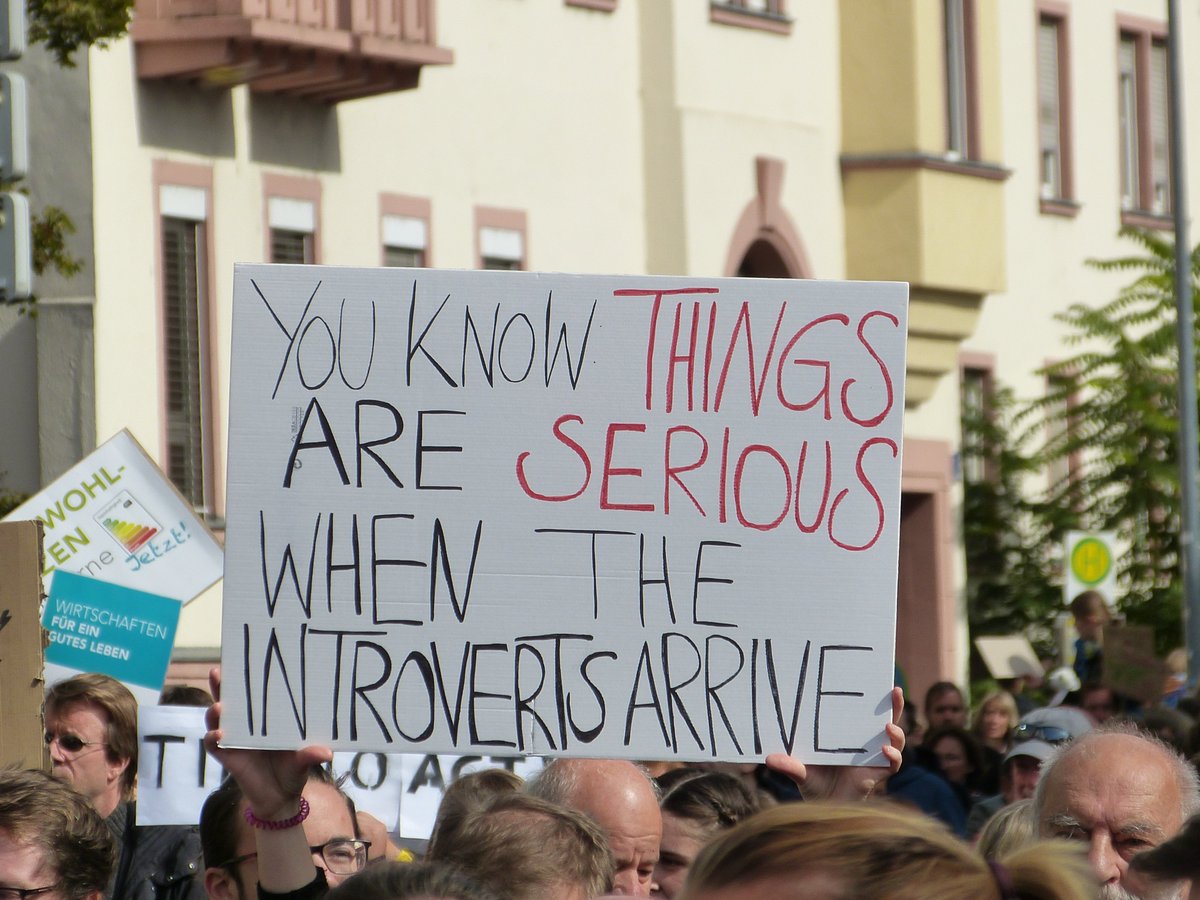 YOU KNOW THINGS
ARE SERIOUS
WHEN THE
INTROVERTS ARRIVE
WOHL-
EN
rne
Jetzt!
WIRTSCHAFTEN
FÜR EIN
GUTES LEBEN
TI O ACT
H